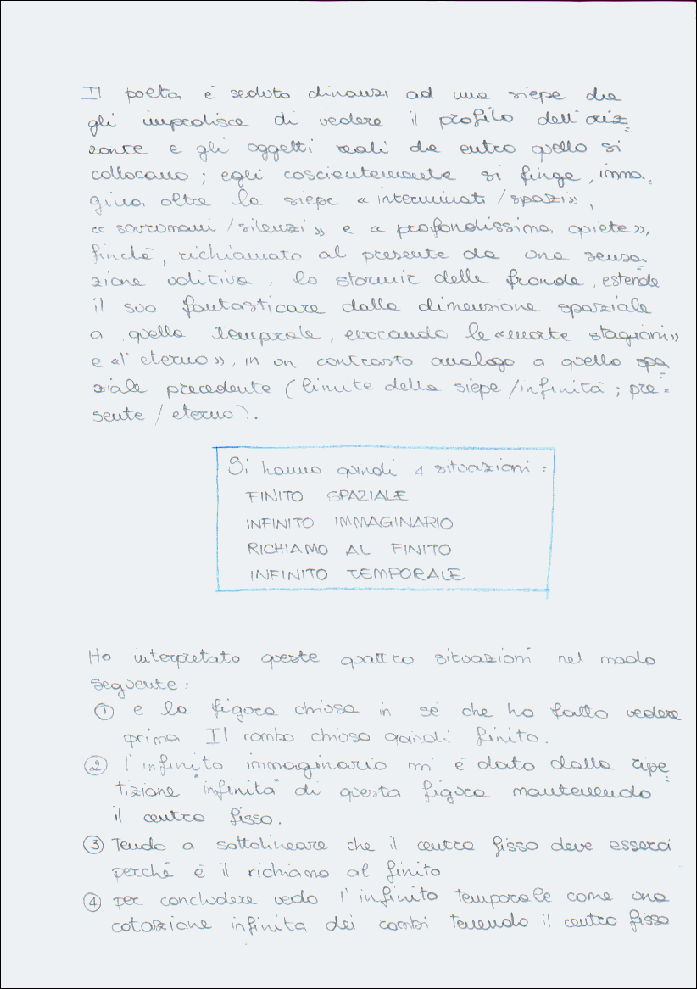 Il poeta è seduto dinanzi ad una siepe che
gli impedisce di vedere il profilo dell'oriz=
zonte e gli oggetti reali che entro quello si
collocano; egli coscientemente si finge, imma,
gina oltre la siepe « interminati / spazi »,
« sovrumani / silenzi » e « profondissima quiete »,
finché, richiamato al presente da una sensa
zione uditiva, lo stormir delle fronde, estende
il suo fantasticare dalla dimensione spaziale
a quella temporale, evocando le «morte stagioni»
e «l'eterno», in un contrasto analogo a quello spa
ziale precedente (limite della siepe / infinità; pre=
sente / eterno).
Si hanno quindi 4 situazioni:
FINITO SPAZIALE
INFINITO IMMAGINARIO
RICHIAMO AL FINITO
INFINITO TEMPORALE
Ho interpretato queste quattro situazioni nel modo
seguente:
① è la figura chiusa in sé che ho fatto vedere
prima Il rombo chiuso quindi finito.
② l'infinito immaginario mi è dato dalla ripe
tizione "infinita" di questa figura mantenendo
il centro fisso.
③ Tendo a sottolineare che il centro fisso deve esserci
perché è il richiamo al finito
④ per concludere vedo l'infinito temporale come una
rotazione infinita dei rombi tenendo il centro fisso